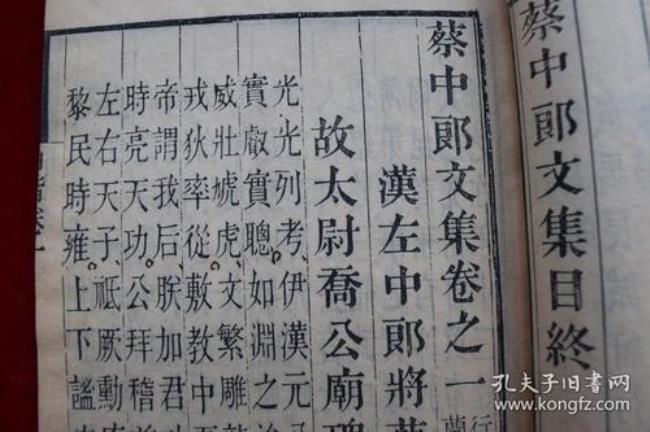 蔡中郎文集目終
蔡中郎文集卷之一
行
蘭
漢左中郎將
故太尉喬公廟碑
光光列考、伊漢元
實叡實聰。如淵之
威壯虓虎、文繁雕
戎狄率從。敷教中
帝謂我后、朕加君
時亮天功。公拜稽
左右天子、祗厥勳
黎民時雍。上下謐
孔夫子旧书网
www.kongfz.com